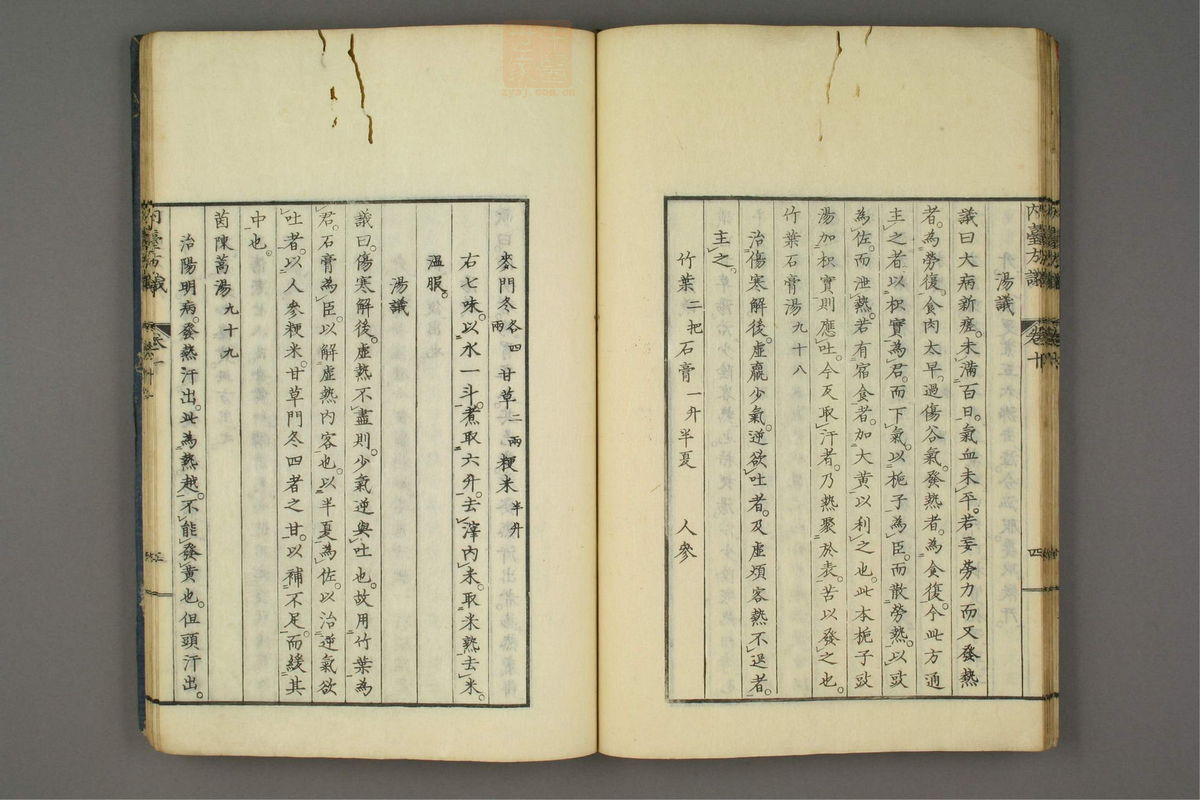 內臺方議
卷十
四
湯議
議曰大病新瘥。未滿百日。氣血未平。若妄勞力而又發熱
者。為勞復。食肉太早。過傷谷氣。發熱者。為食復。今此方通
主之者以枳實為君。而下氣。以梔子為臣。而散勞熱。以豉
為佐。而泄熱。若有宿食者。加大黃以利之也。此本梔子豉
湯加枳實則應吐。今反取汗者。乃熱聚於表。苦以發之也。
竹葉石膏湯九十八
治傷寒解後。虛羸少氣。逆欲吐者。及虛煩客熱不退者。
主之。
竹葉二把石膏一升半夏　人參
麥門冬各四兩甘草二兩粳米半升
右七味。以水一斗。煮取六升。去滓內米。取米熟去米。
溫服。
湯議
議曰。傷寒解後。虛熱不盡則。少氣逆與吐也。故用竹葉為
君。石膏為臣。以解虛熱內客也。以半夏為佐。以治逆氣欲
吐者。以人參粳米。甘草門冬四者之甘。以補不足。而緩其
中也。
茵陳蒿湯九十九
治陽明病。發熱汗出。此為熱越。不能發黃也。但頭汗出。
內臺方議
zysj.com.cn